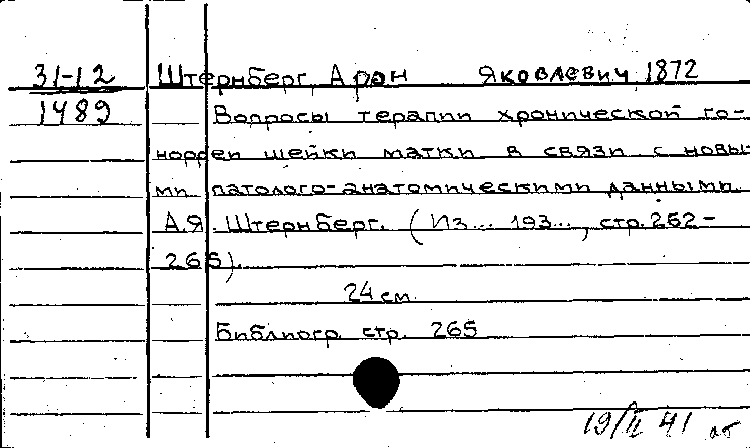 31-12 Штернберг, Арон Яковлевич, 1872
1489 Вопросы терапии хронической го-
норреи шейки матки в связи с новы-
ми патолого-анатомическими данными
А.Я. Штернберг. (Из... 193..., стр. 262-
265).
24 см.
Библиогр. стр. 265
19/II 41